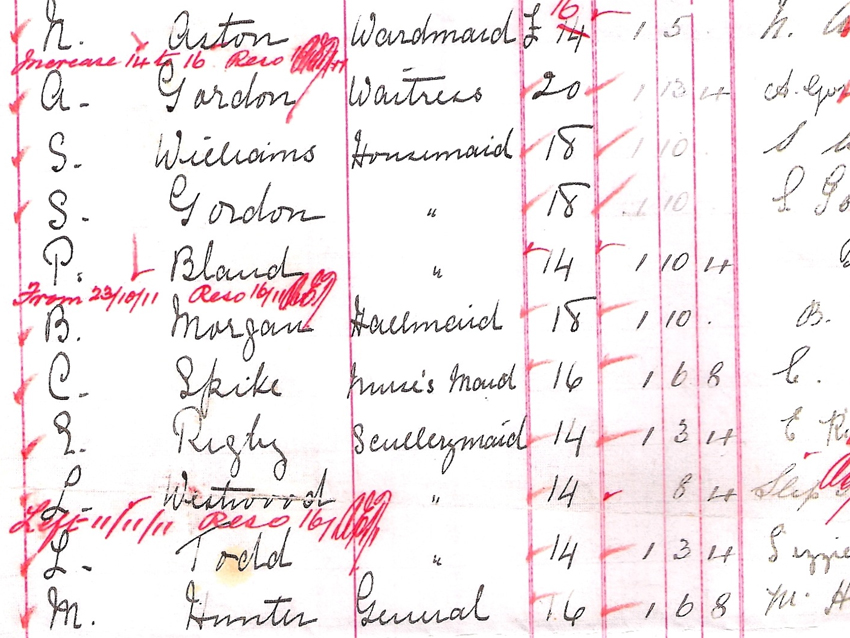 16
N. Aston Wardmaid £ 14 1 5 N.
Increase 14 to 16 Reso
A. Gordon Waitress 20 1 13 4 A. Gor
S. Williams Housemaid 18 1 10 . S
S. Gordon " 18 1 10 S Go
P. Bland " 14 1 10 4
From 23/10/11 Reso 16/11
B. Morgan Hallmaid 18 1 10 . B.
C. Spike Nurse's Maid 16 1 6 8 C.
E. Rigby Scullerymaid 14 1 3 4 E Ri
L. Westwood " 14 8 4 Slip
Left 11/11/11 Reso 16/
L. Todd " 14 1 3 4 Lizzie
M. Hunter General 16 1 6 8 M. H